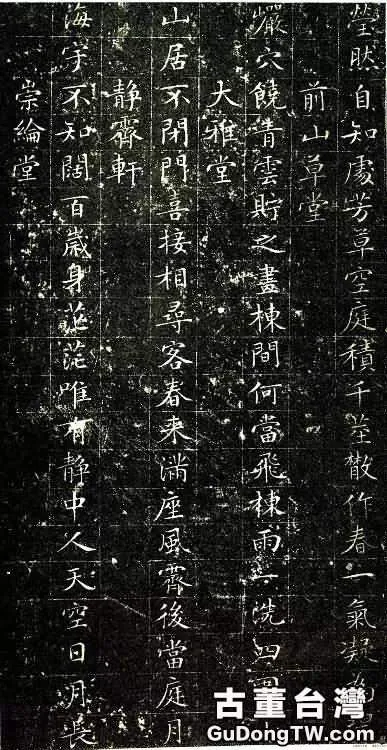 瑩然自知處芳草空庭積千莖散作春一氣凝為
前山草堂
巖穴饒青雲貯之畫棟間何當飛棟雨一洗四
大雅堂
山居不閉門喜接相尋客春來滿座風霽後當庭月
靜齋軒
海宇不知闊百歲身茫茫唯有靜中人天空日月長
崇綸堂
古董台灣
GuDongTW.com